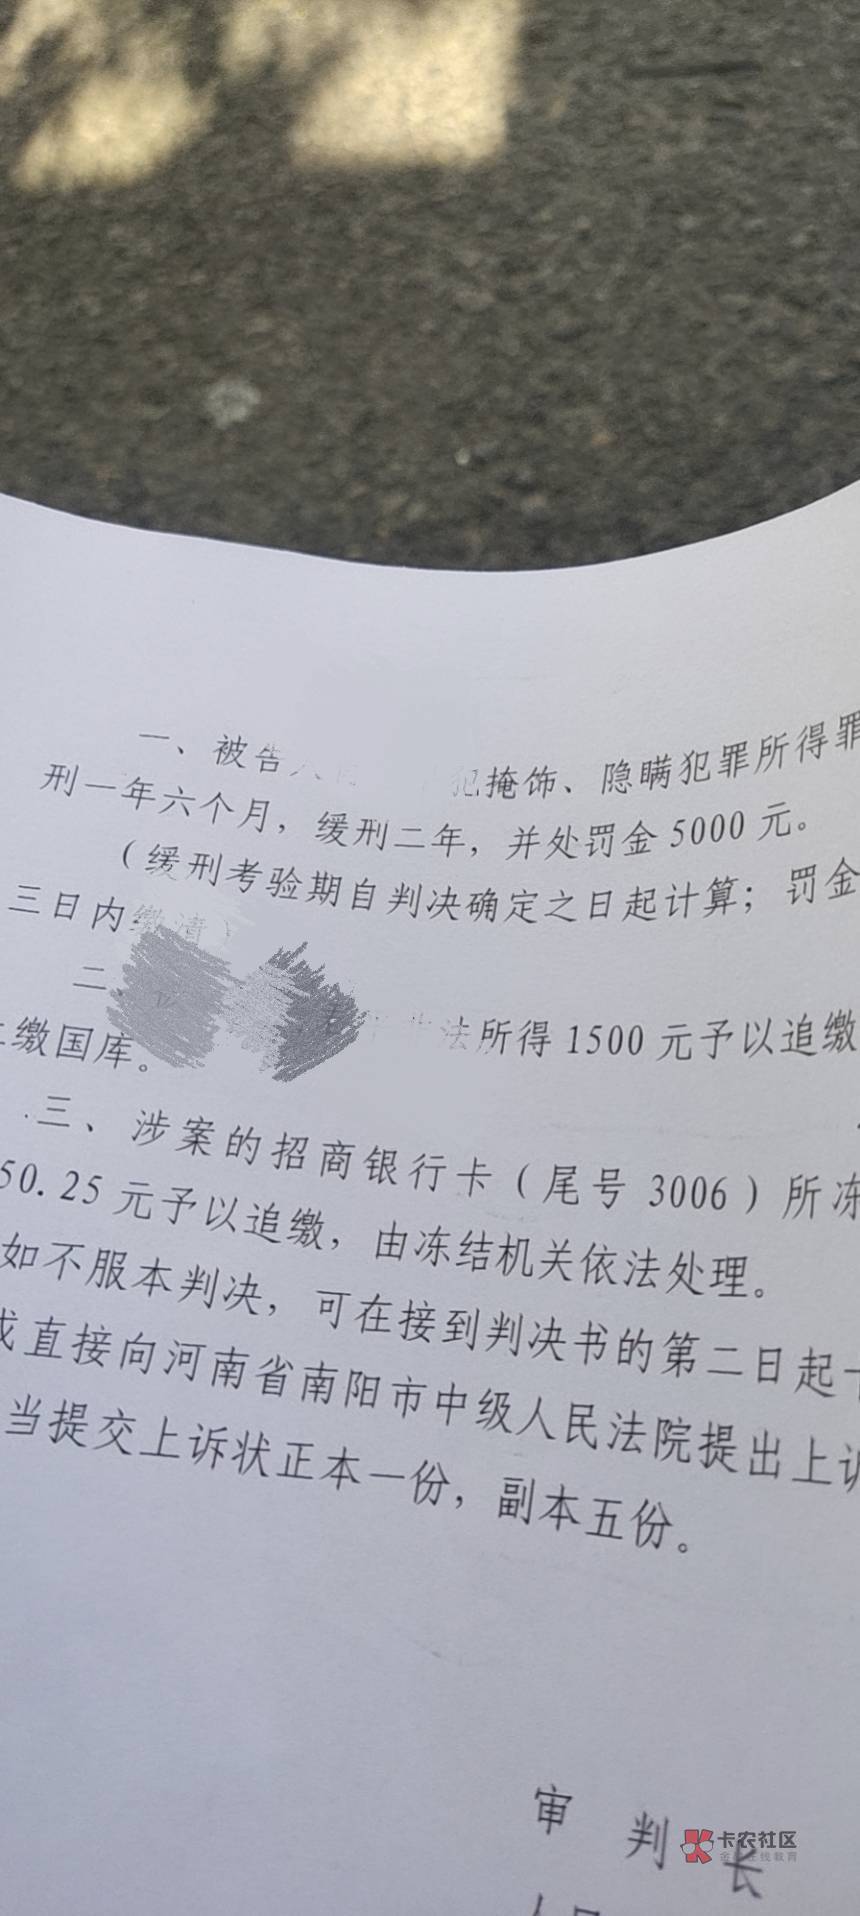 一、被告人 犯掩饰、隐瞒犯罪所得罪
刑一年六个月，缓刑二年，并处罚金5000元。
（缓刑考验期自判决确定之日起计算；罚金
三日内缴清）
二、 法所得1500元予以追缴
缴国库。
三、涉案的招商银行卡（尾号3006）所冻
50.25元予以追缴，由冻结机关依法处理。
如不服本判决，可在接到判决书的第二日起十
或直接向河南省南阳市中级人民法院提出上诉
当提交上诉状正本一份，副本五份。
审 判 长
卡农社区